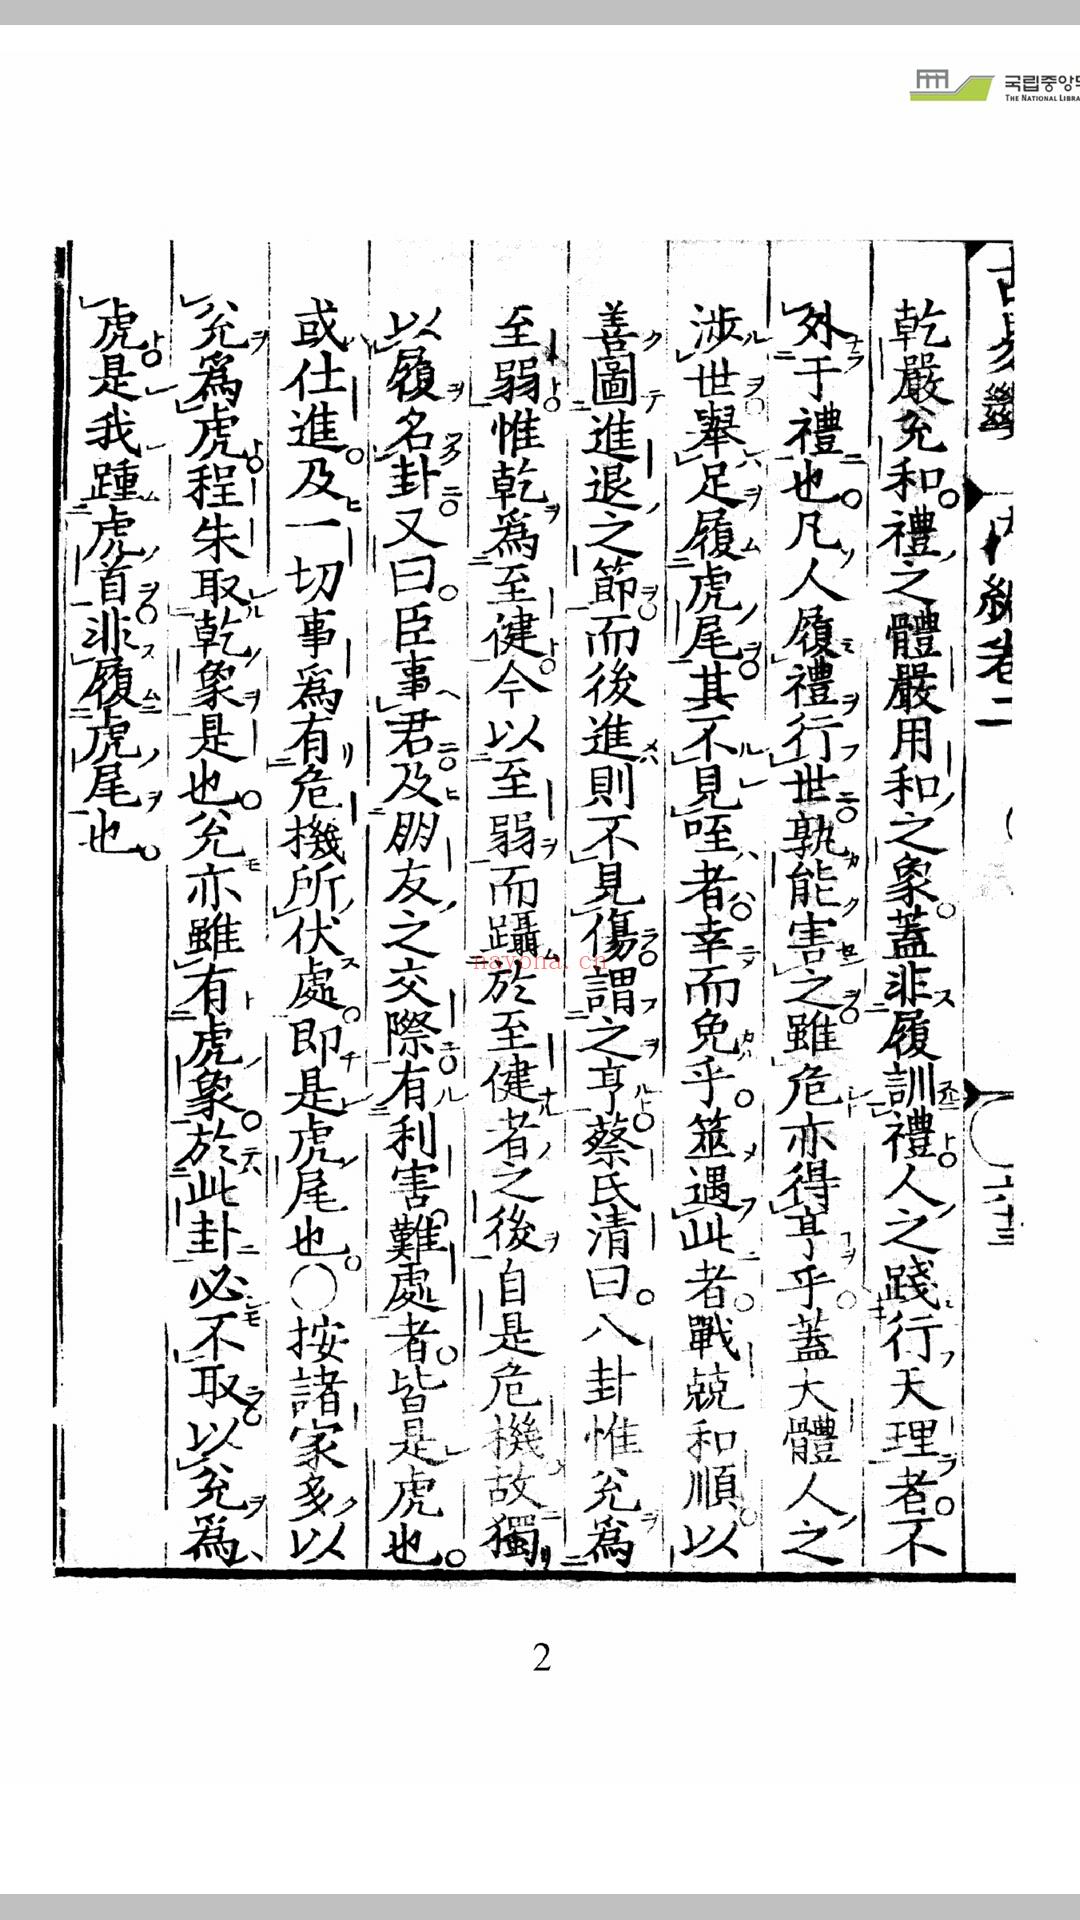 국립중앙도
THE NATIONAL LIBRA
乾嚴兊和禮之體嚴用和之象蓋非履訓禮人之踐行天理者不
外于禮也凡人履禮行世孰能害之雖危亦得亨乎蓋大體人之
涉世舉足履虎尾其不見咥者幸而免乎筮遇此者戰兢和順以
善圖進退之節而後進則不見傷謂之亨蔡氏清曰八卦惟兊爲
至弱惟乾爲至健今以至弱而躡於至健者之後自是危機故獨
以履名卦又曰臣事君及朋友之交際有利害難處者皆是虎也
或仕進及一切事爲有危機所伏處即是虎尾也〇按諸家多以
兊爲虎程朱取乾象是也兊亦雖有虎象於此卦必不取以兊爲
虎是我踵虎首非履虎尾也
nayona.cn
2